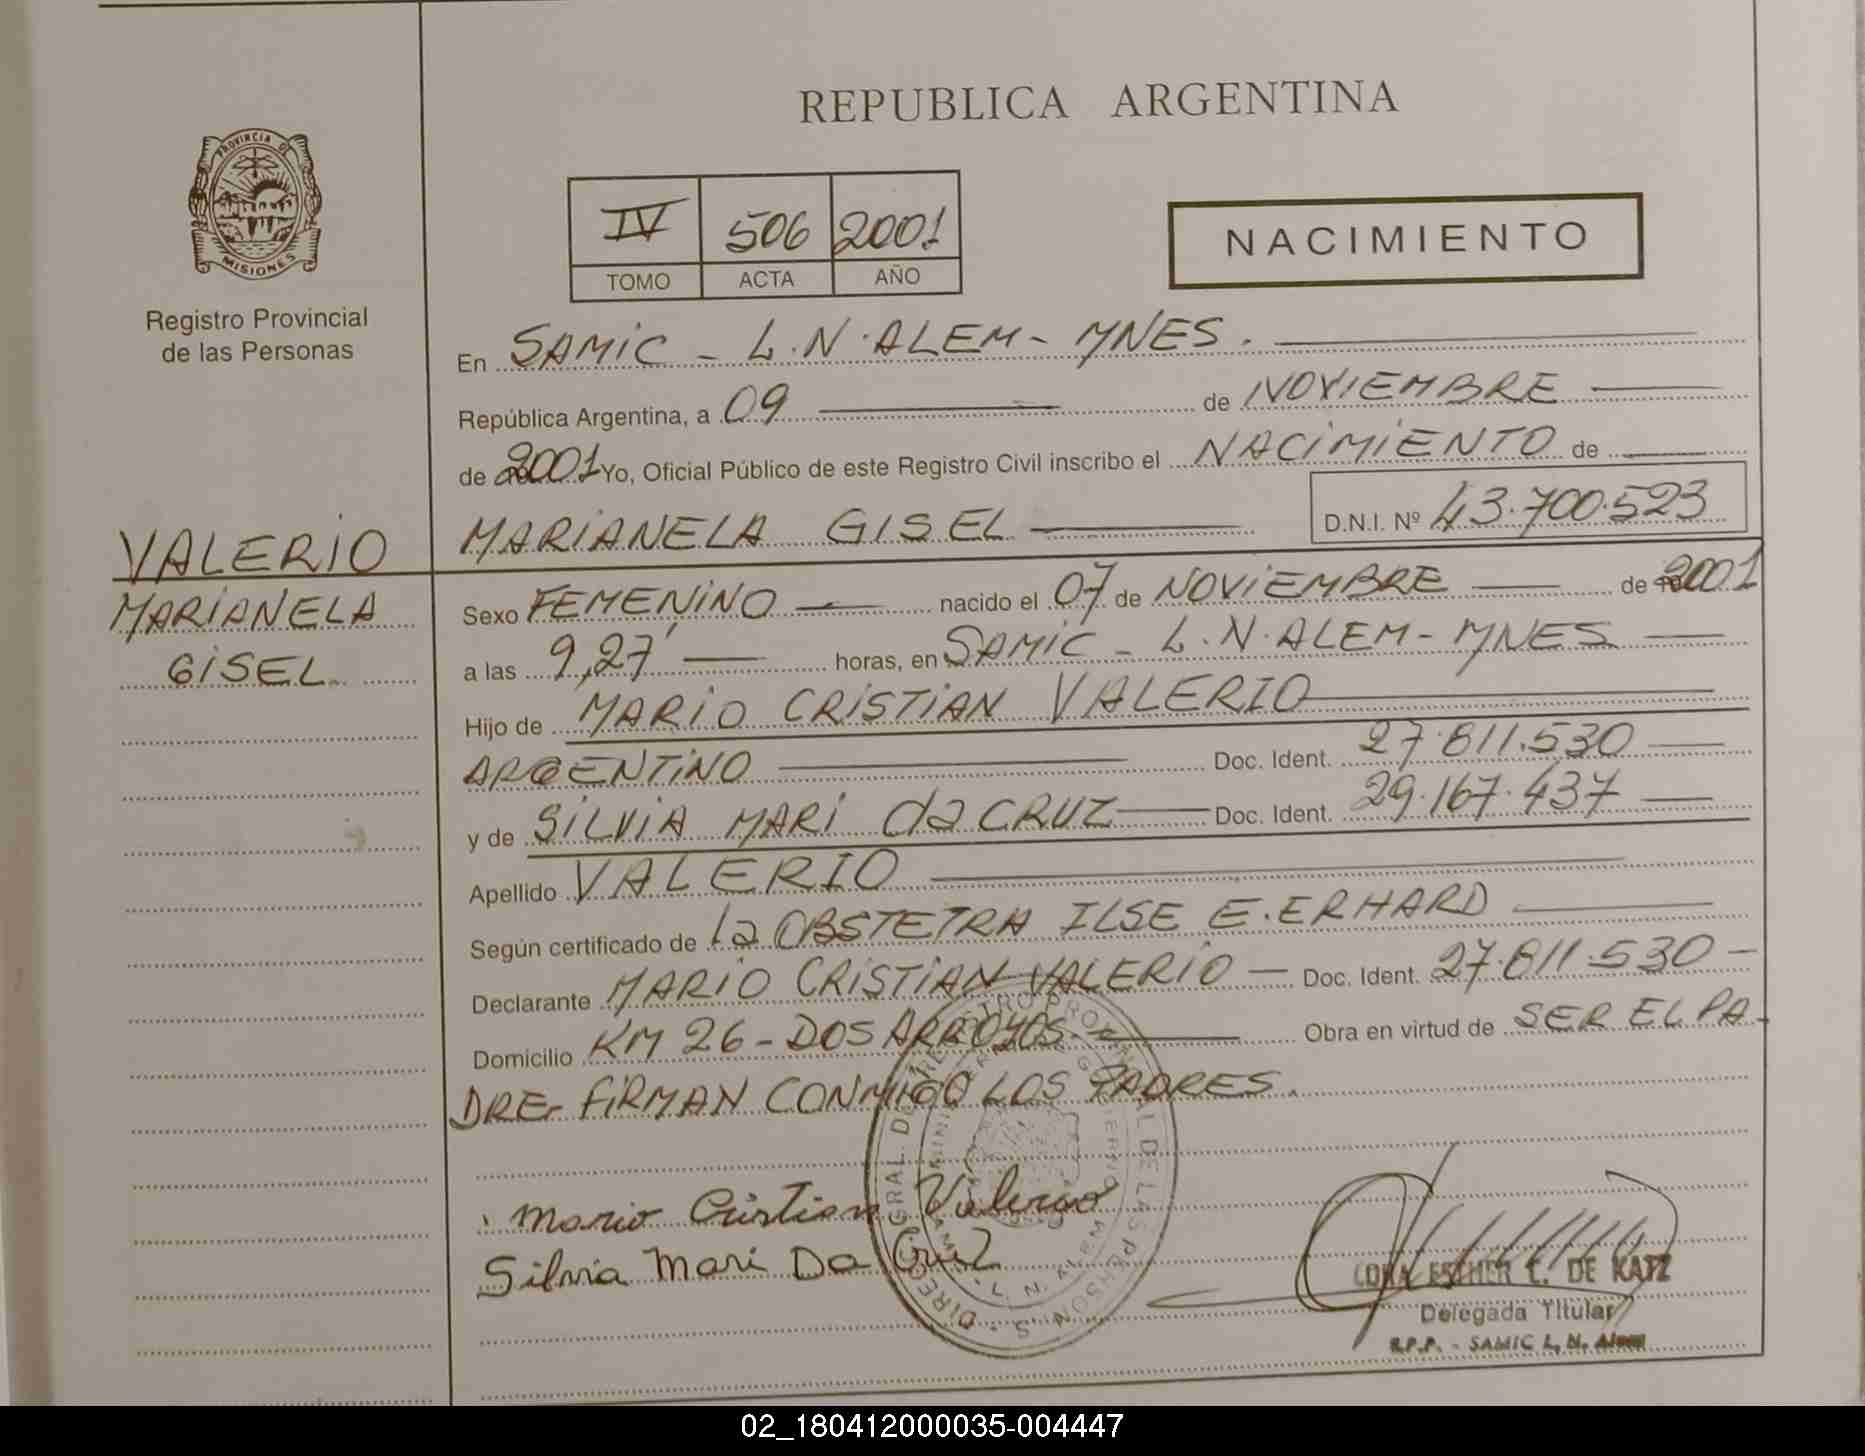 REPUBLICA ARGENTINA
PROVINCIA DE
MISIONES
Registro Provincial
de las Personas
IV 506 2001
TOMO ACTA AÑO
NACIMIENTO
En SAMIC - L.N. ALEM - MNES.
República Argentina, a 09 de NOVIEMBRE
de 2001 Yo, Oficial Público de este Registro Civil inscribo el NACIMIENTO de
MARIANELA GISEL D.N.I. Nº 43.700.523
VALERIO
MARIANELA
GISEL
Sexo FEMENINO nacido el 07 de NOVIEMBRE de 2001
a las 9,27' horas, en SAMIC - L.N. ALEM - MNES
Hijo de MARIO CRISTIAN VALERIO
ARGENTINO Doc. Ident. 27.811.530
y de SILVIA MARI da CRUZ Doc. Ident. 29.167.437
Apellido VALERIO
Según certificado de la OBSTETRA ILSE E. ERHARD
Declarante MARIO CRISTIAN VALERIO - Doc. Ident. 27.811.530 -
Domicilio KM 26 - DOS ARROYOS - Obra en virtud de SER EL PA-
DRE- FIRMAN CONMIGO LOS PADRES.
Mario Cristian Valerio
Silvia Mari Da Cruz
L. N. Alem
ESTHER C. DE KATZ
Delegada Titular
R.P.P. - SAMIC L. N. Alem
02_180412000035-004447